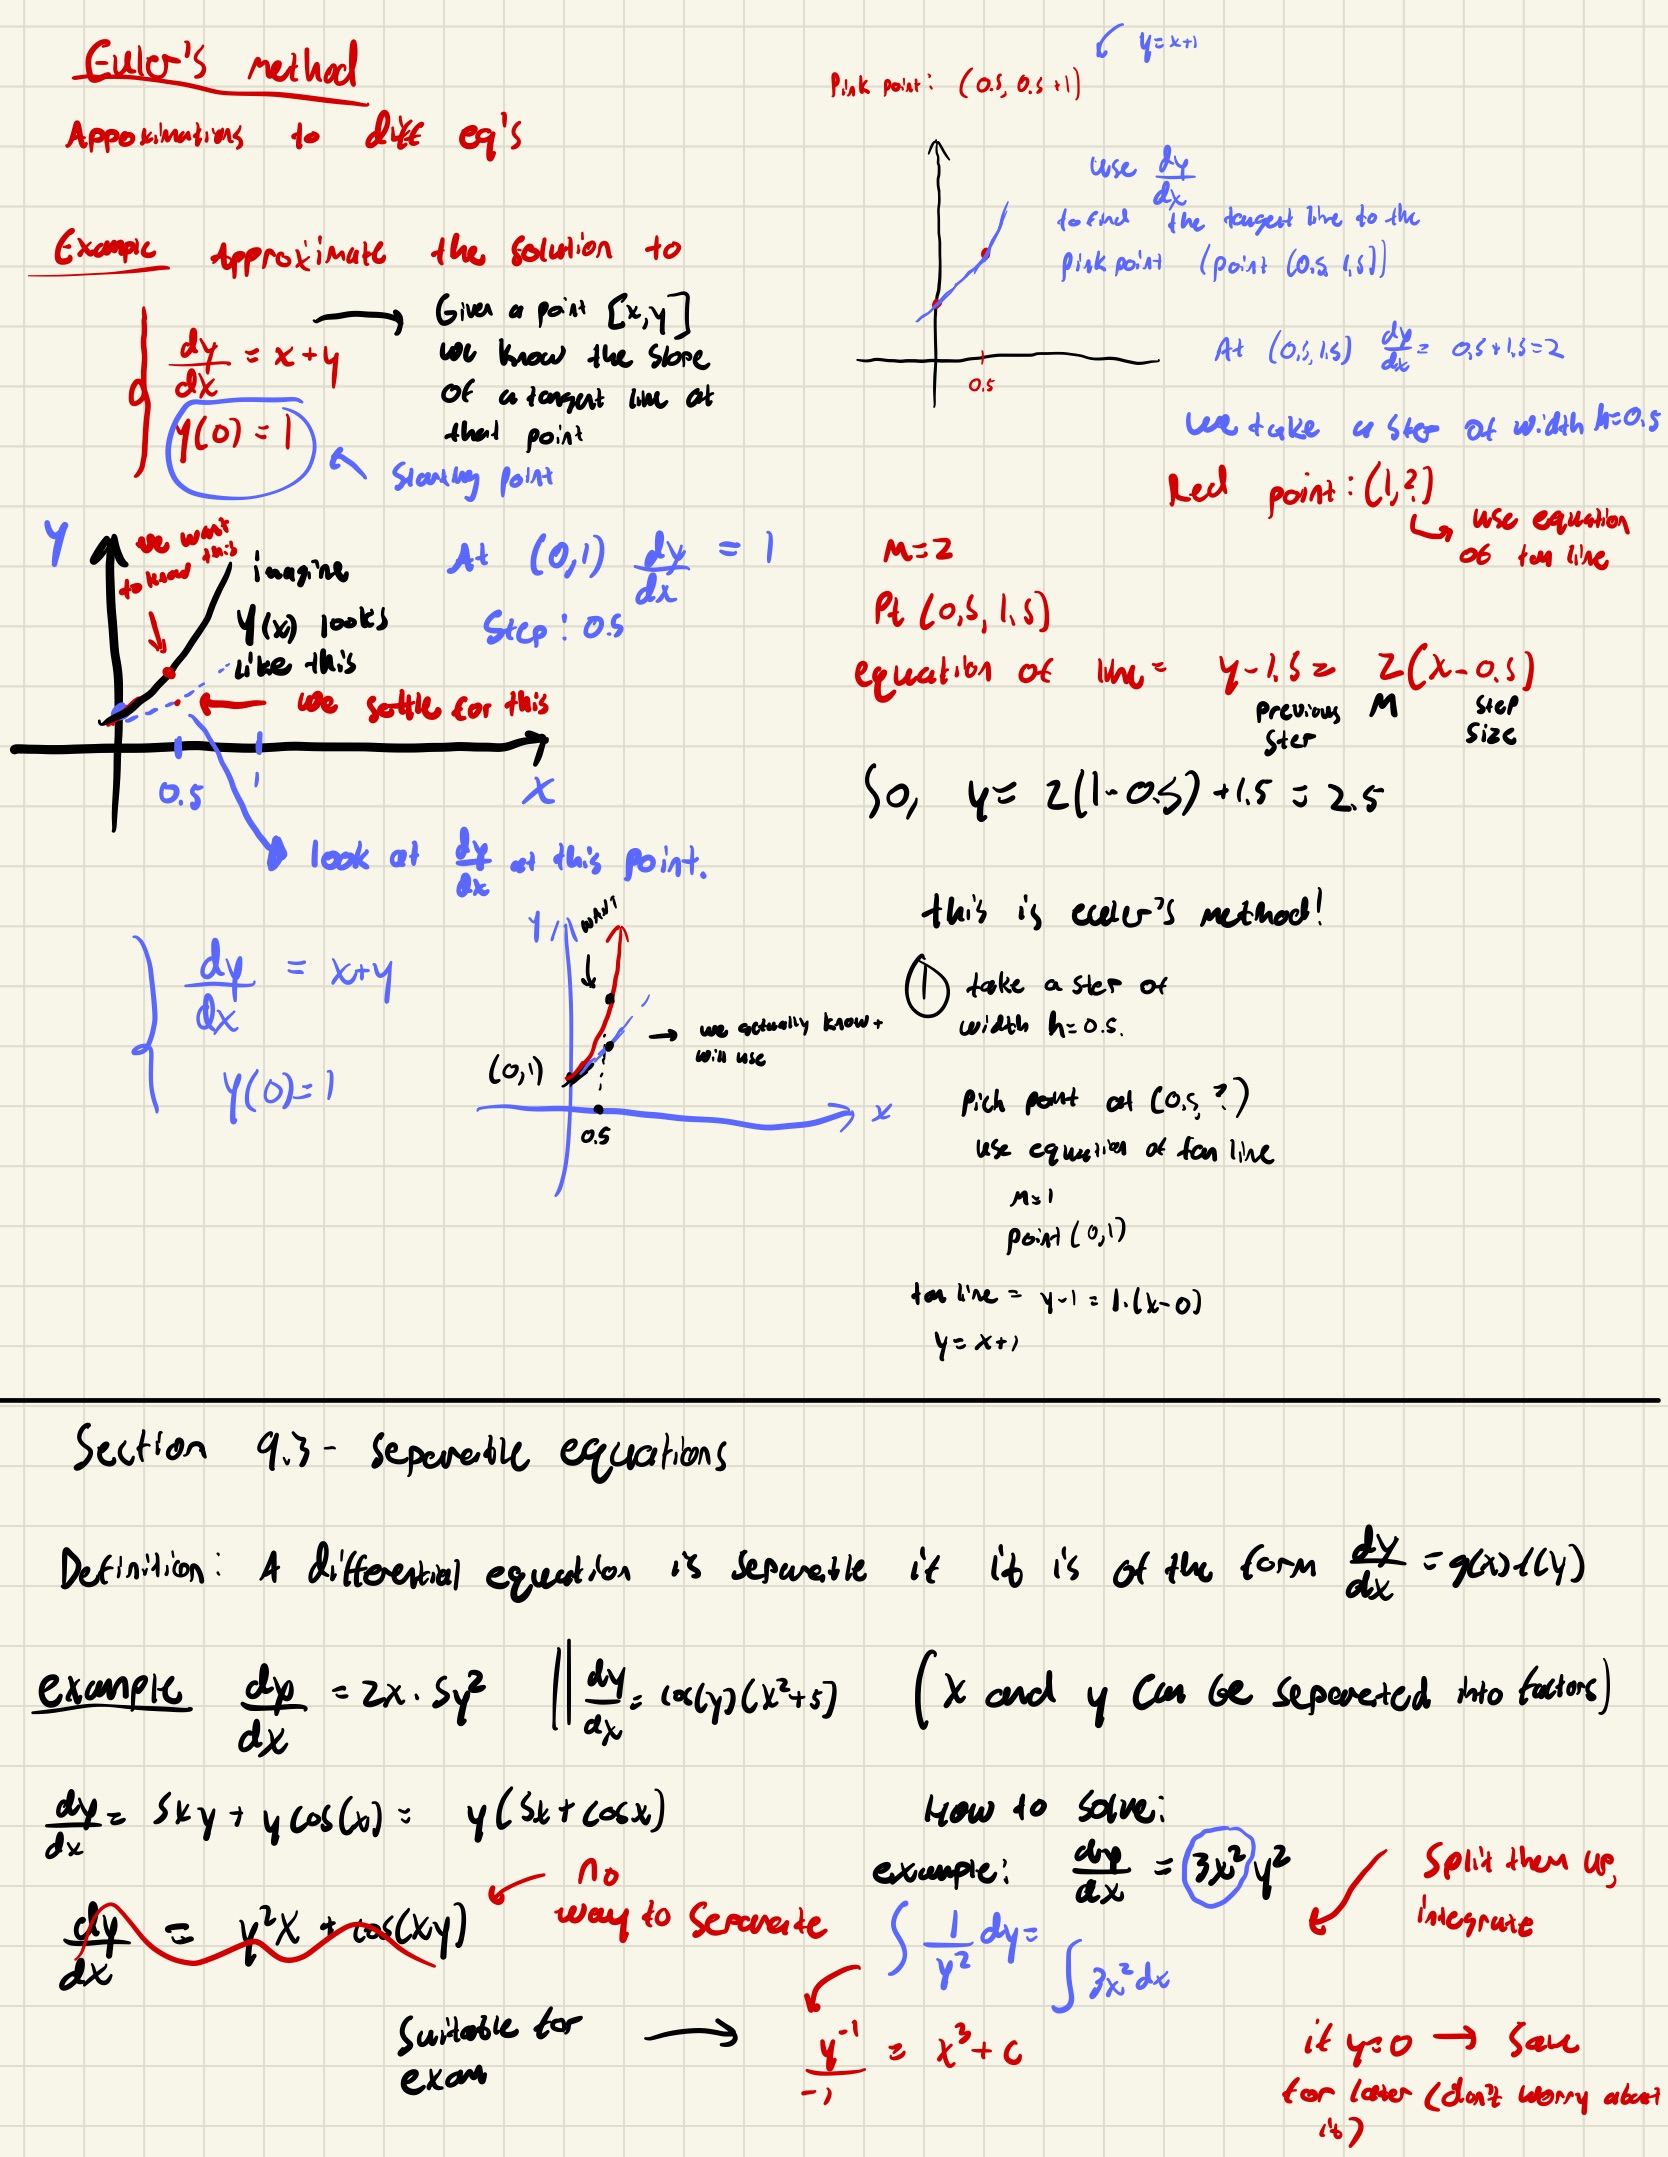 Euler's method
Approximations to diff eq's
Example Approximate the solution to
dy/dx = x+y
y(0) = 1
Given a point [x,y]
we know the slope
of a tangent line at
that point
Starting point
y
we want
to know this
imagine
y(x) looks
like this
we settle for this
0.5
1
x
At (0,1) dy/dx = 1
Step: 0.5
look at dy/dx at this point.
dy/dx = x+y
y(0)=1
y
want
(0,1)
0.5
x
→ we actually know +
will use
y=x+1
Pink point: (0.5, 0.5+1)
0.5
use dy/dx
to find the tangent line to the
pink point (point (0.5, 1.5))
At (0.5, 1.5) dy/dx = 0.5+1.5=2
we take a step of width h=0.5
Red point: (1,?)
use equation
of tan line
m=2
Pt (0.5, 1.5)
equation of line = y-1.5 = 2(x-0.5)
previous
step
M
step
size
So, y = 2(1-0.5)+1.5 = 2.5
this is euler's method!
① take a step of
width h=0.5.
Pich point at (0.5, ?)
use equation of tan line
m=1
point (0,1)
tan line = y-1 = 1.(x-0)
y = x+1
Section 9.3 - separable equations
Definition: A differential equation is separable if it is of the form dy/dx = g(x)f(y)
example dy/dx = 2x · 5y² || dy/dx = cos(y)(x²+5) (x and y can be separated into factors)
dy/dx = 5xy + y cos(x) = y(5x + cosx)
dy/dx = y²x + cos(xy)
no
way to separate
How to solve:
example: dy/dx = 3x² y²
Split them up,
integrate
∫ 1/y² dy = ∫ 3x² dx
Suitable for
exam
→
y⁻¹/-1 = x³ + c
if y=0 → save
for later (don't worry about
it)